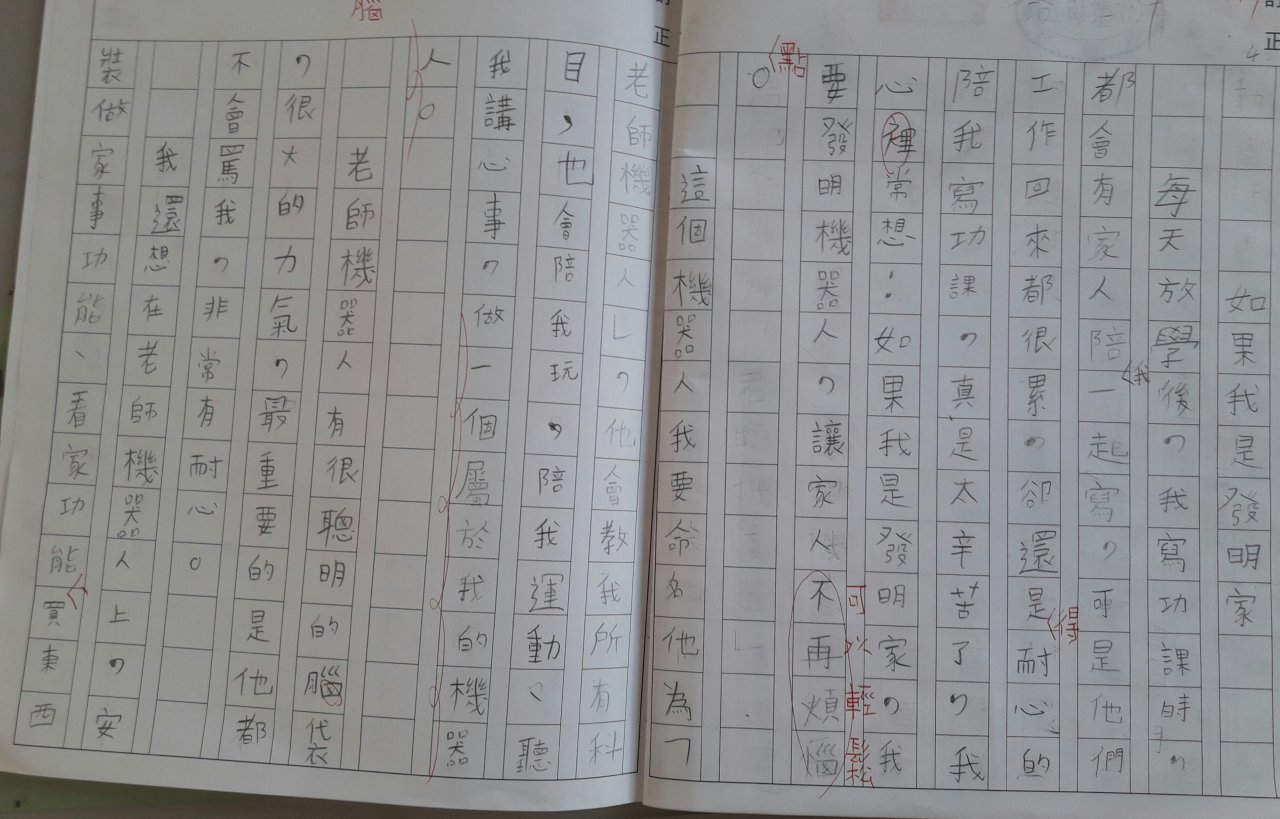 如果我是發明家
每天放學後，我寫功課時，
都會有家人陪一起寫，可是他們
我
工作回來都很累，卻還是耐心的
得
陪我寫功課，真是太辛苦了，我
心裡常想：如果我是發明家，我
可以輕鬆
要發明機器人，讓家人不再煩惱
點
。
這個機器人我要命名他為「
老師機器人」，他會教我所有科
目，也會陪我玩，陪我運動、聽
我講心事，做一個屬於我的機器
人。
老師機器人有很聰明的腦袋
腦
，很大的力氣，最重要的是他都
不會罵我，非常有耐心。
我還想在老師機器人上，安
裝做家事功能、看家功能買東西
訂正
訂正